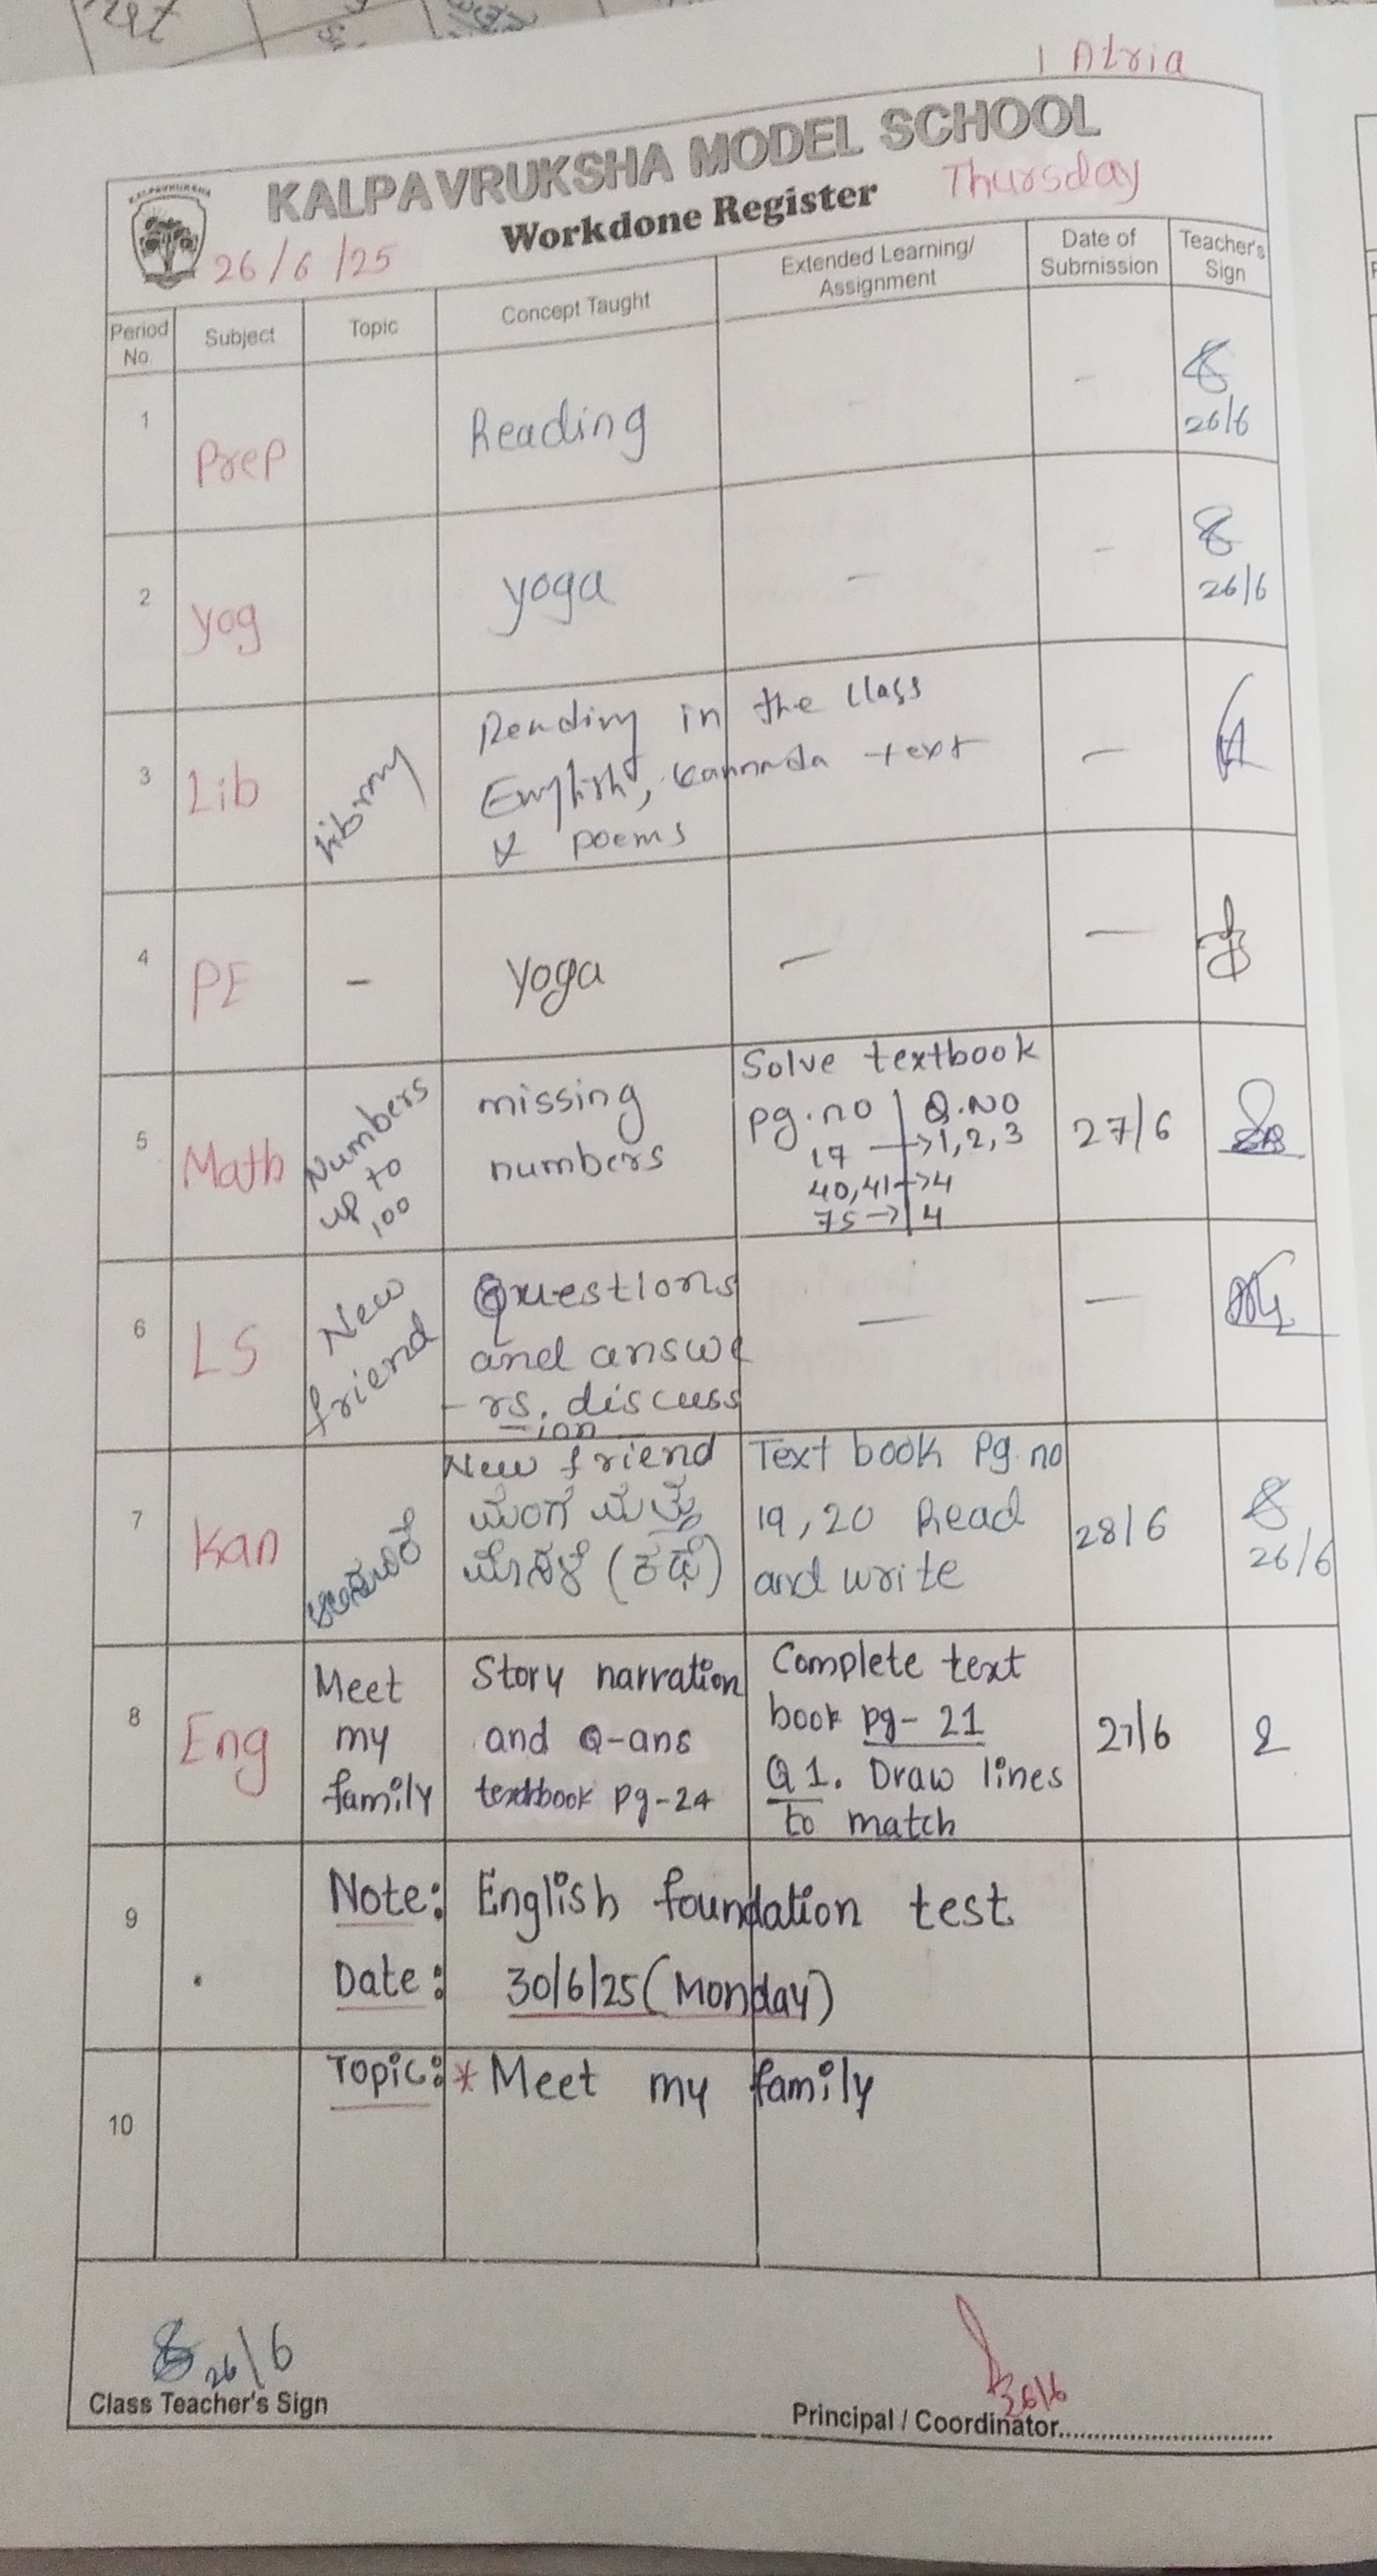 1 Atria
KALPAVRUKSHA
KALPAVRUKSHA MODEL SCHOOL
Workdone Register
Thursday
26/6/25
Period No.
Subject
Topic
Concept Taught
Extended Learning/
Assignment
Date of
Submission
Teacher's
Sign
1
Prep
Reading
-
-
26/6
2
yog
yoga
-
-
26/6
3
Lib
Library
Reading in the class
English, Kannada text
& poems
-
4
PE
-
Yoga
-
-
5
Math
Numbers
up to
100
missing
numbers
Solve textbook
pg.no | Q.NO
17 -> 1, 2, 3
40,41 -> 4
75 -> 4
27/6
6
LS
New
friend
Questions
and answe
-rs. discuss
-ion
-
-
7
Kan
New friend
ಮಂಗ ಮತ್ತು
ಮೊಸಳೆ (ಕಥೆ)
Text book Pg.no
19, 20 Read
and write
28/6
26/6
8
Eng
Meet
my
family
Story narration
and Q-ans
textbook pg-24
Complete text
book pg-21
Q1. Draw lines
to match
27/6
9
Note: English foundation test
Date: 30/6/25 (Monday)
10
Topic: * Meet my family
26/6
Class Teacher's Sign
Principal / Coordinator..............................